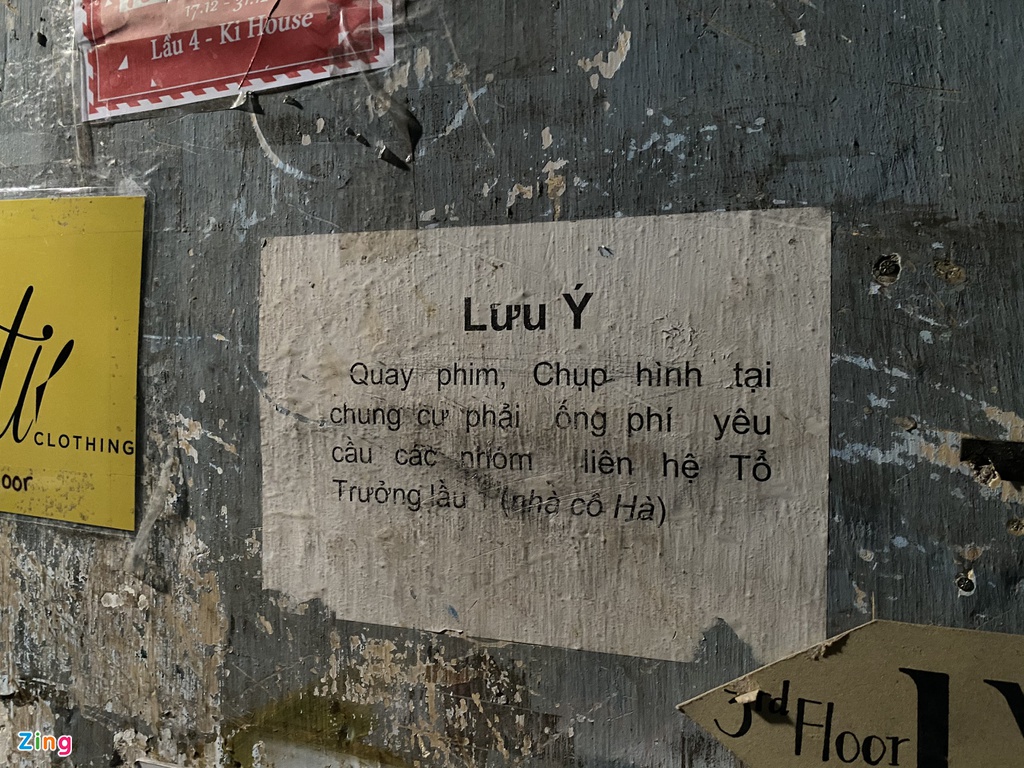 17.12 - 31.12
Lầu 4 - Ki House
Lưu Ý
Quay phim, Chụp hình tại
chung cư phải ống phí yêu
cầu các nhóm liên hệ Tổ
Trưởng lầu 1 (nhà cô Hà)
tú
CLOTHING
oor
3rd Floor
Zing